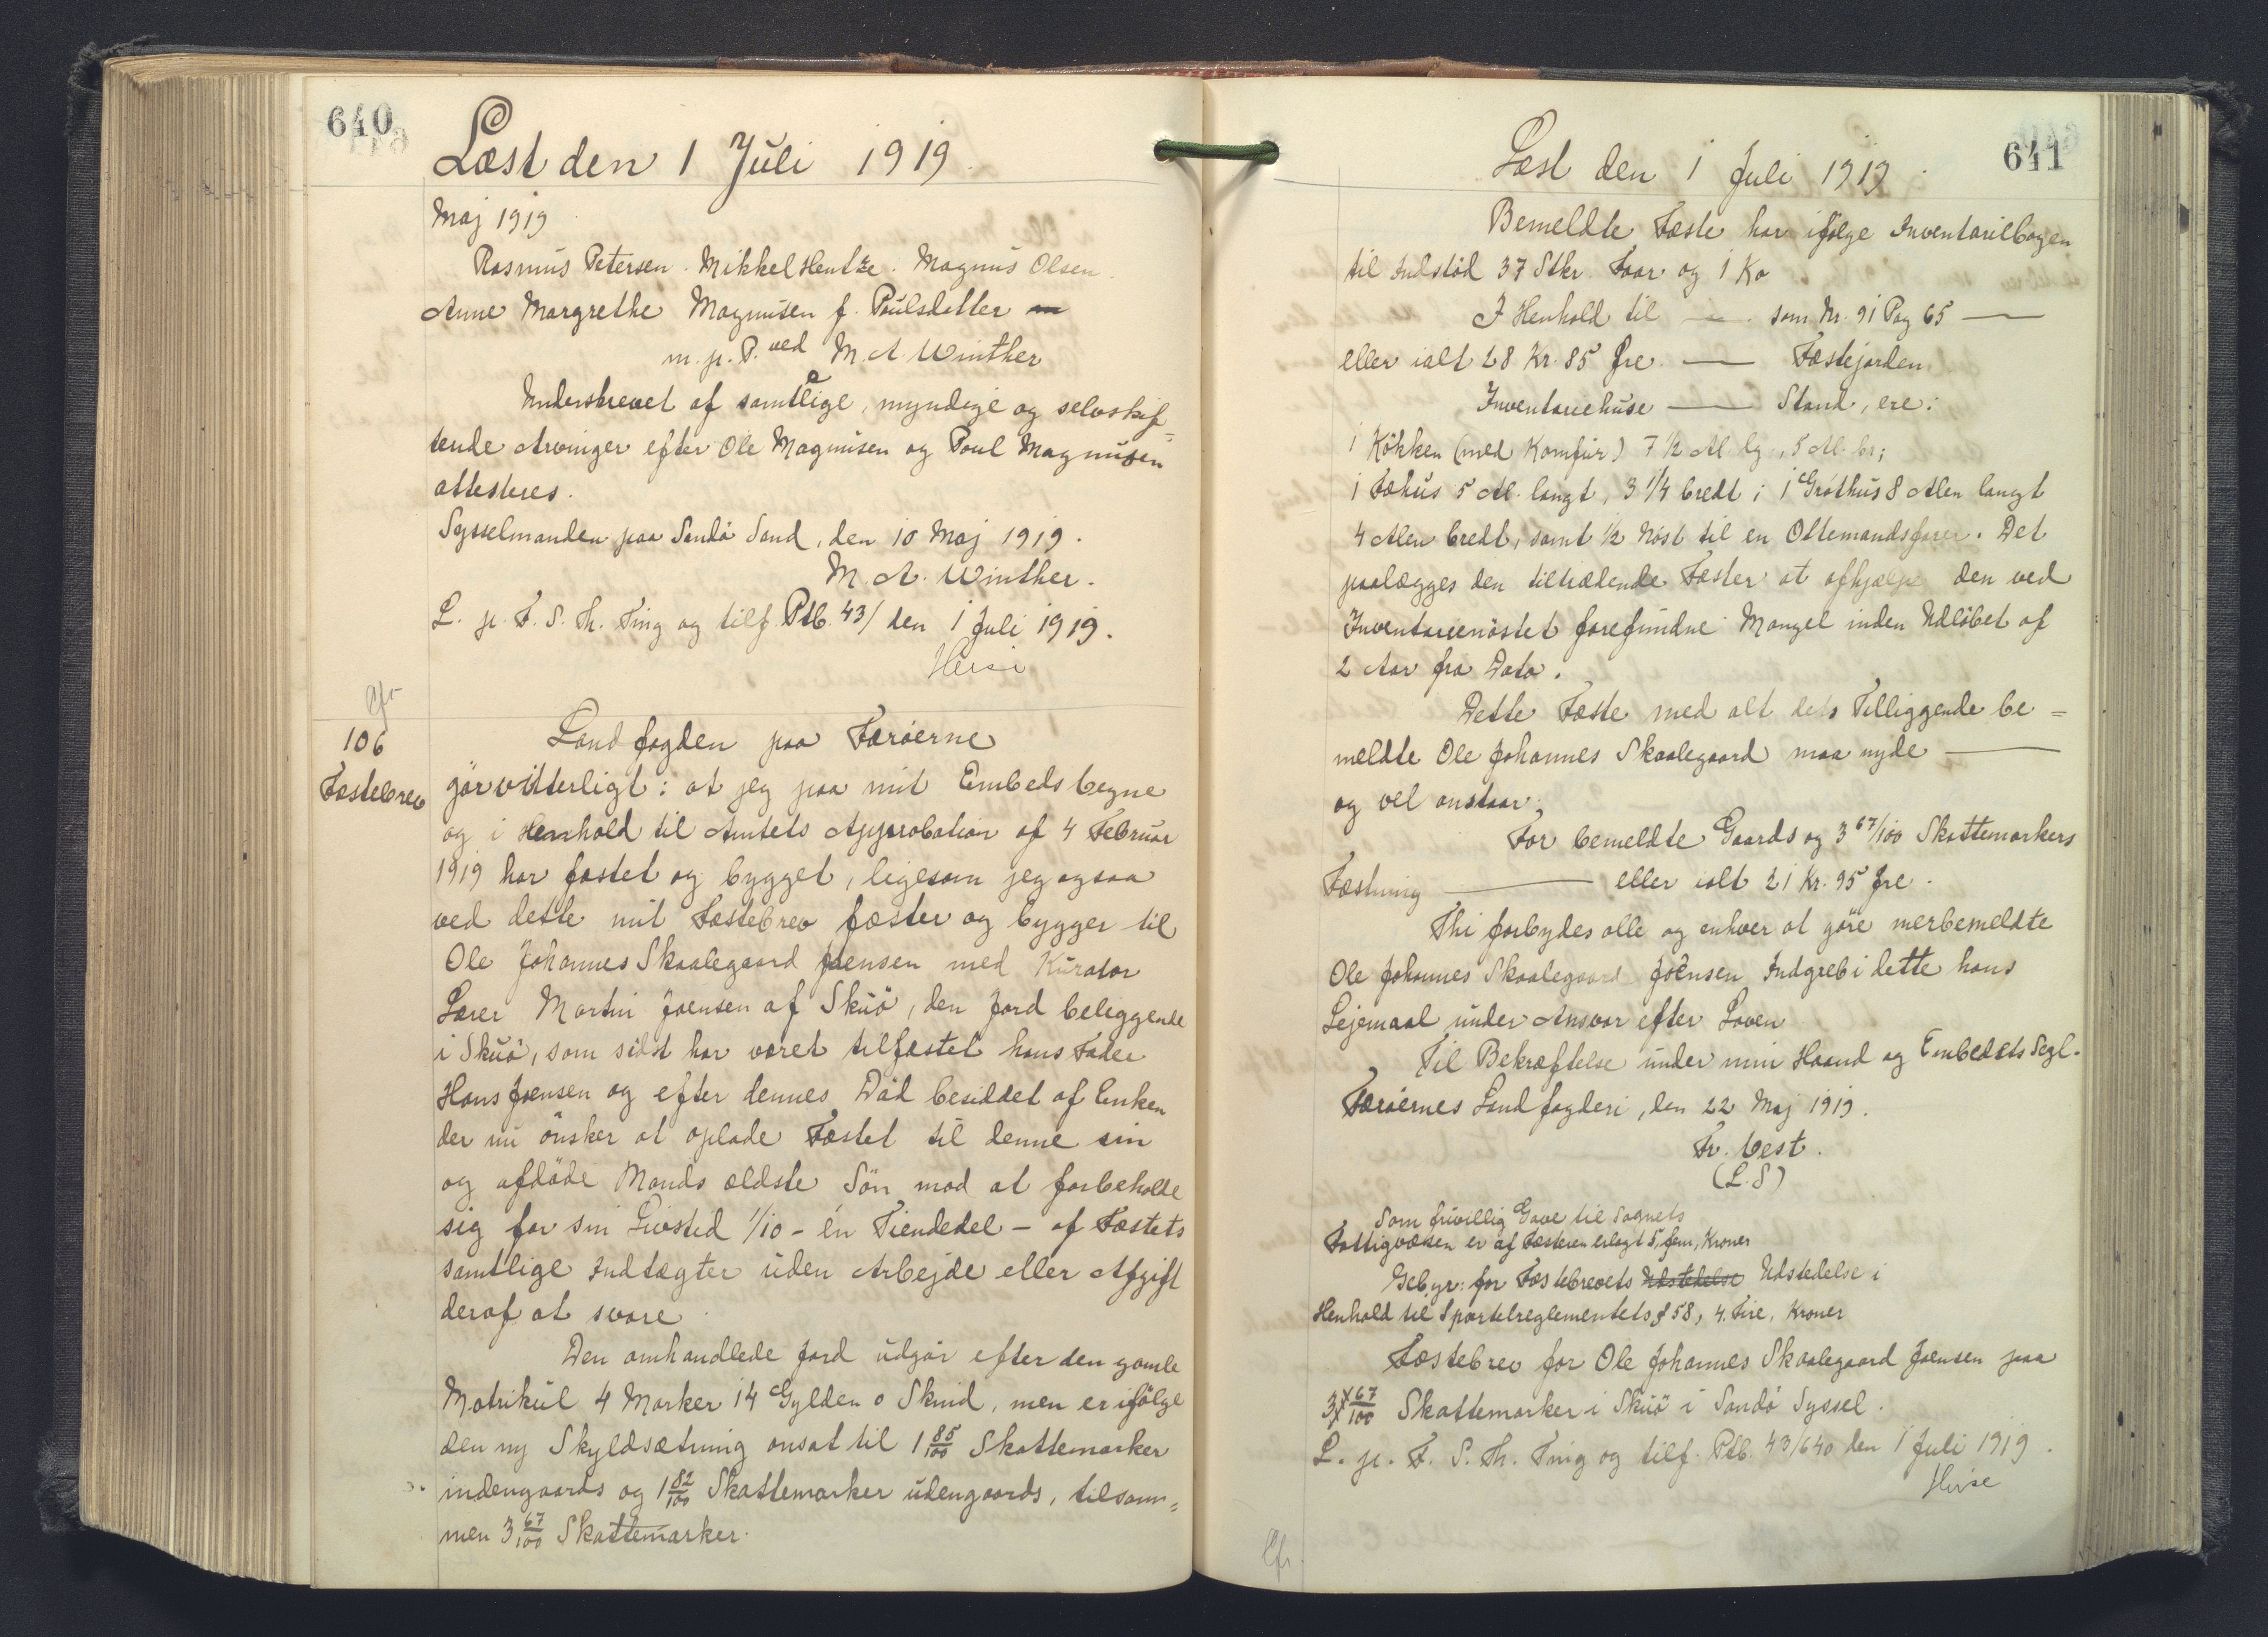 640
Læst den 1 Juli 1919.
Maj 1919
Rasmus Petersen. Mikkel Hentze. Magnus Olsen.
Anne Margrethe Magnusen f. Poulsdatter
m. p. P. ved M. A. Winther
Underskrevet af samtlige, myndige og selvskif-
tende Arvinger efter Ole Magnusen og Poul Magnusen
attesteres.
Sysselmanden paa Sandö Sand, den 10 Maj 1919.
M. A. Winther.
L. p. F. S. Th. Ting og tilf. Ptb. 43/ den 1 Juli 1919.
Cfr
106
Fæstebrev
Landfogden paa Færöerne
gör vitterligt: at jeg paa mit Embeds vegne
og i Henhold til Amtets Approbation af 4 Februar
1919 har fæstet og bygget, ligesom jeg ogsaa
ved dette mit Fæstebrev fæster og bygger til
Ole Johannes Skaalegaard Joensen med Kurator
Lærer Martin Joensen af Skuö, den Jord beliggende
i Skuö, som sidst har været tilfæstet hans Fader
Hans Joensen og efter dennes Död besiddet af Enken
der nu önsker at oplade Fæstet til denne sin
og afdöde Mands ældste Sön mod at forbeholde
sig for sin Livstid 1/10 - én Tiendedel - af Fæstets
samtlige Indtægter uden Arbejde eller Afgift
deraf at svare.
Den omhandlede Jord udgör efter den gamle
Matrikul 4 Marker 14 Gylden 0 Skind, men er ifölge
den ny Skyldsætning ansat til 1 85/100 Skattemarker
indengaards og 1 82/100 Skattemarker udengaards, tilsam=
men 3 67/100 Skattemarker.
641
Læst den 1 Juli 1919.
Bemeldte Fæste har ifölge Inventariebogen
til Indstöd 37 Stkr Faar og 1 Ko
I Henhold til — . som Nr. 91 Pag 65 —
eller ialt 28 Kr. 85 Øre. — Fæstejorden.
Inventariehuse — Stand, ere:
1 Kökken (med Komfur) 7 1/2 Al. lg., 5 Al. br;
1 Fæhus 5 Al. langt, 3 1/4 bredt; 1 Gróthus 8 Alen langt
4 Alen bredt, samt 1/2 Nöst til en Ottemandsfarer. Det
paalægges den tiltrædende Fæster at afhjælpe den ved
Inventarienöstet forefundne Mangel inden Udlöbet af
2 Aar fra Dato.
Dette Fæste med alt dets Tilliggende be=
meldte Ole Johannes Skaalegaard maa nyde —
og vel anstaar;
For bemeldte Gaards og 3 67/100 Skattemarkers
Fæstning — eller ialt 21 Kr. 95 Øre.
Thi forbydes alle og enhver at göre merbemeldte
Ole Johannes Skaalegaard Joensen Indgreb i dette hans
Lejemaal under Ansvar efter Loven
Til Bekræftelse under min Haand og Embedets Segl.
Færöernes Landfogderi, den 22 Maj 1919.
Fr. Vest.
(L. S)
Som frivillig Gave til Sognets
Fattigvæsen er af Fæsteren erlagt 5, fem, Kroner
Gebyr: for Fæstebrevets Udstedelse Udstedelse i
Henhold til Sportelreglementets § 58, 4. Fire, Kroner
Fæstebrev for Ole Johannes Skaalegaard Joensen paa
3 67/100 Skattemarker i Skuö i Sandö Syssel.
L. p. F. S. Th. Ting og tilf. Ptb. 43/640 den 1 Juli 1919.
Cfr.